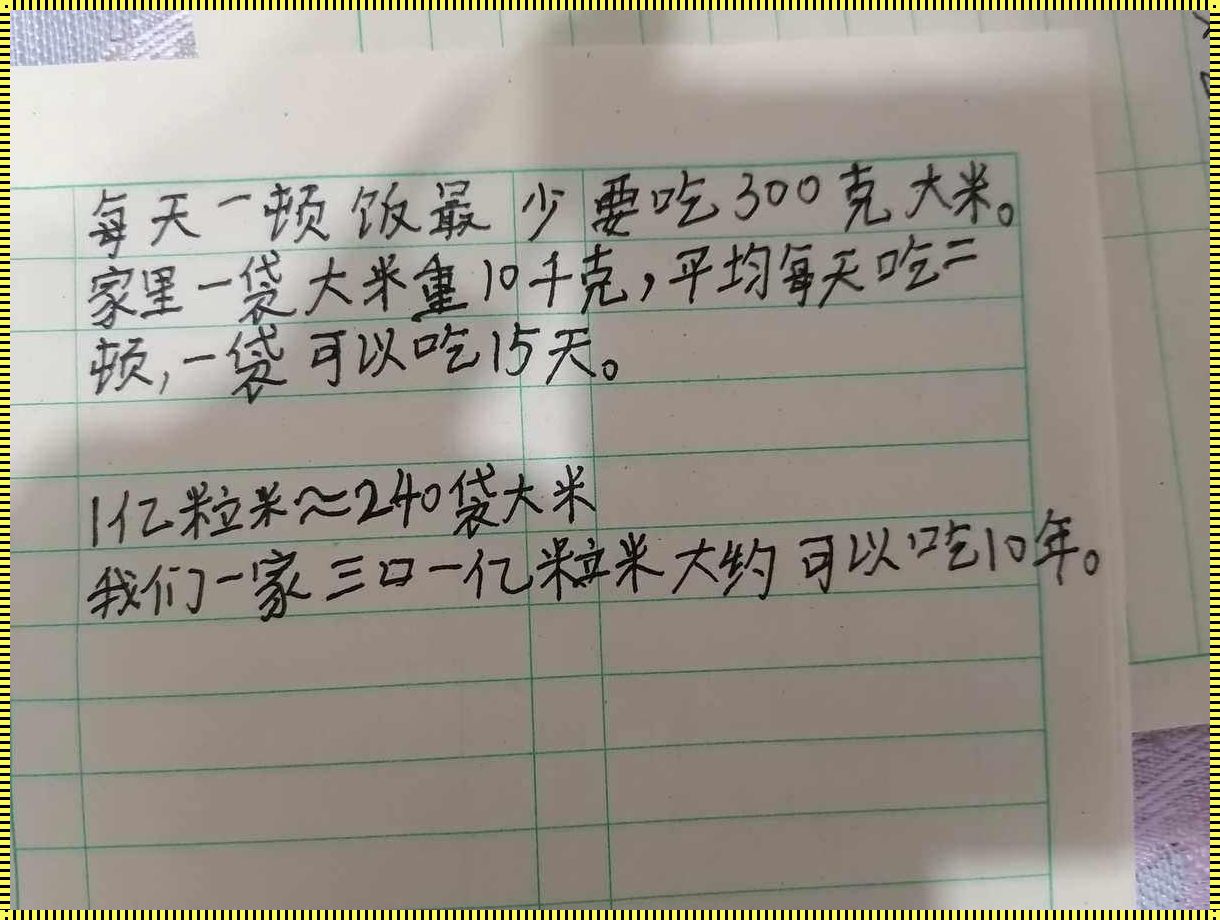 每天一顿饭最少要吃300克大米。
家里一袋大米重10千克,平均每天吃二
顿,一袋可以吃15天。
1亿粒米≈240袋大米
我们一家三口一亿粒米大约可以吃10年。